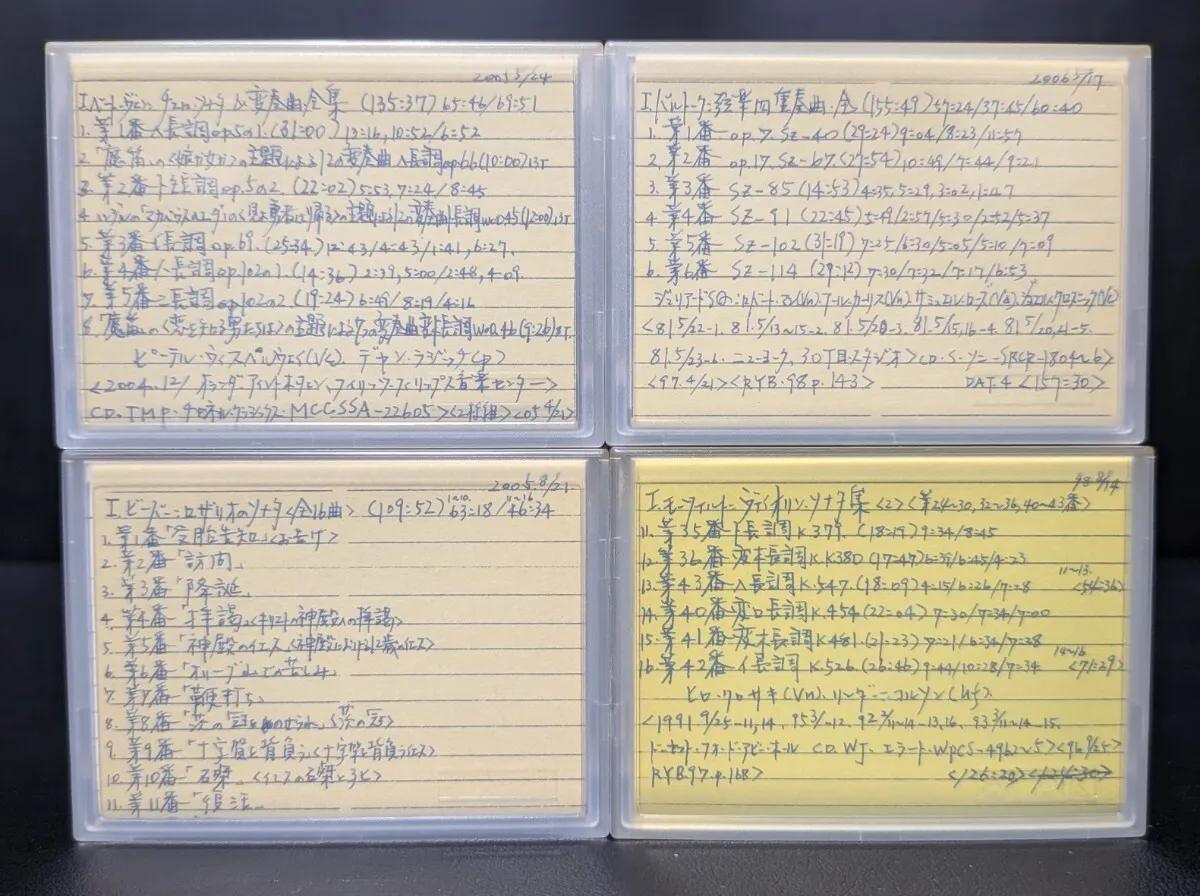 2005 5/24
I.ベートーヴェン:チェロ・ソナタ&変奏曲全集 (135:37) 65:46/69:51
1. 第1番ヘ長調op.5の1. (31:00) 13:16, 10:52/6:52
2.「魔笛」の〈娘か女か〉の主題による12の変奏曲ヘ長調op.66(10:00)
3. 第2番ト短調op.5の2. (22:02) 5:53, 7:24/8:45
4. ヘンデルの「マカベウスのユダ」の〈見よ勇者は帰る〉の主題による12の変奏曲ト長調WoO.45(12:00)
5. 第3番イ長調op.69. (25:34) 12:43/4:43/1:41, 6:27.
6. 第4番ハ長調op.102の1. (14:36) 2:39, 5:00/2:48, 4:09.
7. 第5番ニ長調op.102の2 (19:24) 6:49/8:19/4:16
8.「魔笛」の〈恋を知る男たちは〉の主題による7つの変奏曲変ホ長調WoO.46(9:26)
ピーテル・ウィスペルウェイ(Vc) デヤン・ラジッチ(p)
<2004.12/ オランダ・アイントホーフェン, フィリップス音楽センター>
CD.TMP・チャンネル・クラシックス-MCCSSA-22605><2枚組><05 4/21>
2006 5/17
I.バルトーク:弦楽四重奏曲・全(155:49) 57:24/37:45/60:40
1. 第1番 op.7 SZ-40 (29:24) 9:04/8:23/11:57
2. 第2番 op.17 SZ-67 (27:54) 10:49/7:44/9:21
3. 第3番 SZ-85 (14:53) 4:35, 5:29, 3:02, 1:47
4. 第4番 SZ-91 (22:45) 5:49/2:57/5:30/2:52/5:37
5. 第5番 SZ-102 (31:19) 7:25/6:30/5:05/5:10/7:09
6. 第6番 SZ-114 (29:12) 7:30/7:32/7:17/6:53.
ジュリアードSQ:ロバート・マン(Vn)アール・カーリス(Vn)サミュエル・ローズ(Va)ジョエル・クロスニック(Vc)
<81.5/22-1. 81.5/13~15-2. 81.5/20-3. 81.5/15,16-4. 81.5/20,21-5.
81.5/23-6. ニューヨーク, 30丁目・スタジオ>CD・S・ソニー-SRCR-1804~6>
<97.4/21><RYB.98 p.143> DAT.4 <157:30>
2005. 8/21.
I.ビーバー:ロザリオのソナタ<全16曲> (109:52) 1~10. 63:18/ 11~16 46:34
1. 第1番「受胎告知」<お告げ>
2. 第2番「訪問」
3. 第3番「降誕」
4. 第4番「拝謁」<キリストの神殿への拝謁>
5. 第5番「神殿のイエス」<神殿における12歳のイエス>
6. 第6番「オリーブ山での苦しみ」
7. 第7番「鞭打ち」
8. 第8番「茨の冠をのせられ」<茨の冠>
9. 第9番「十字架を背負う」<十字架を背負うイエス>
10. 第10番「石榤」<イエスの石榤と死>
11. 第11番「復活」
98 8/14
I.モーツァルト:ヴァイオリン・ソナタ集<2><第24~30, 32~36, 40~43番>
11. 第35番ト長調K.379. (18:19) 9:34/8:45
12. 第36番変ホ長調K.K380 (17:47) 6:39/6:45/4:23
13. 第43番ヘ長調K.547. (18:09) 4:15/6:26/7:28 11~13. <54:36>
14. 第40番変ロ長調K.454 (22:04) 7:30/7:34/7:00
15. 第41番変ホ長調K.481 (21:23) 7:21/6:34/7:28
16. 第42番イ長調K.526. (26:46) 9:44/10:28/7:34 14~16 <71:29>
ヒロ・クロサキ(Vn), リンダ・ニコルソン(hf)
<1991 9/25-11,14. 95 3/-12. 92 2/11~14-13,16. 93 3/11~14-15.
ドーセット・フォード・アビー・ホール CD.WJ・エラート-WPCS-4962~5><96 9/25>
RYB97.p.168> <126:20><124:30>